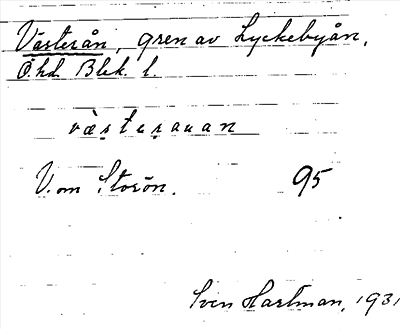 Västerån, gren av Lyckebyån,
Ö. hd Blek. l.
västeṣauan
V. om Storön. 95
Sven Hartman, 1931